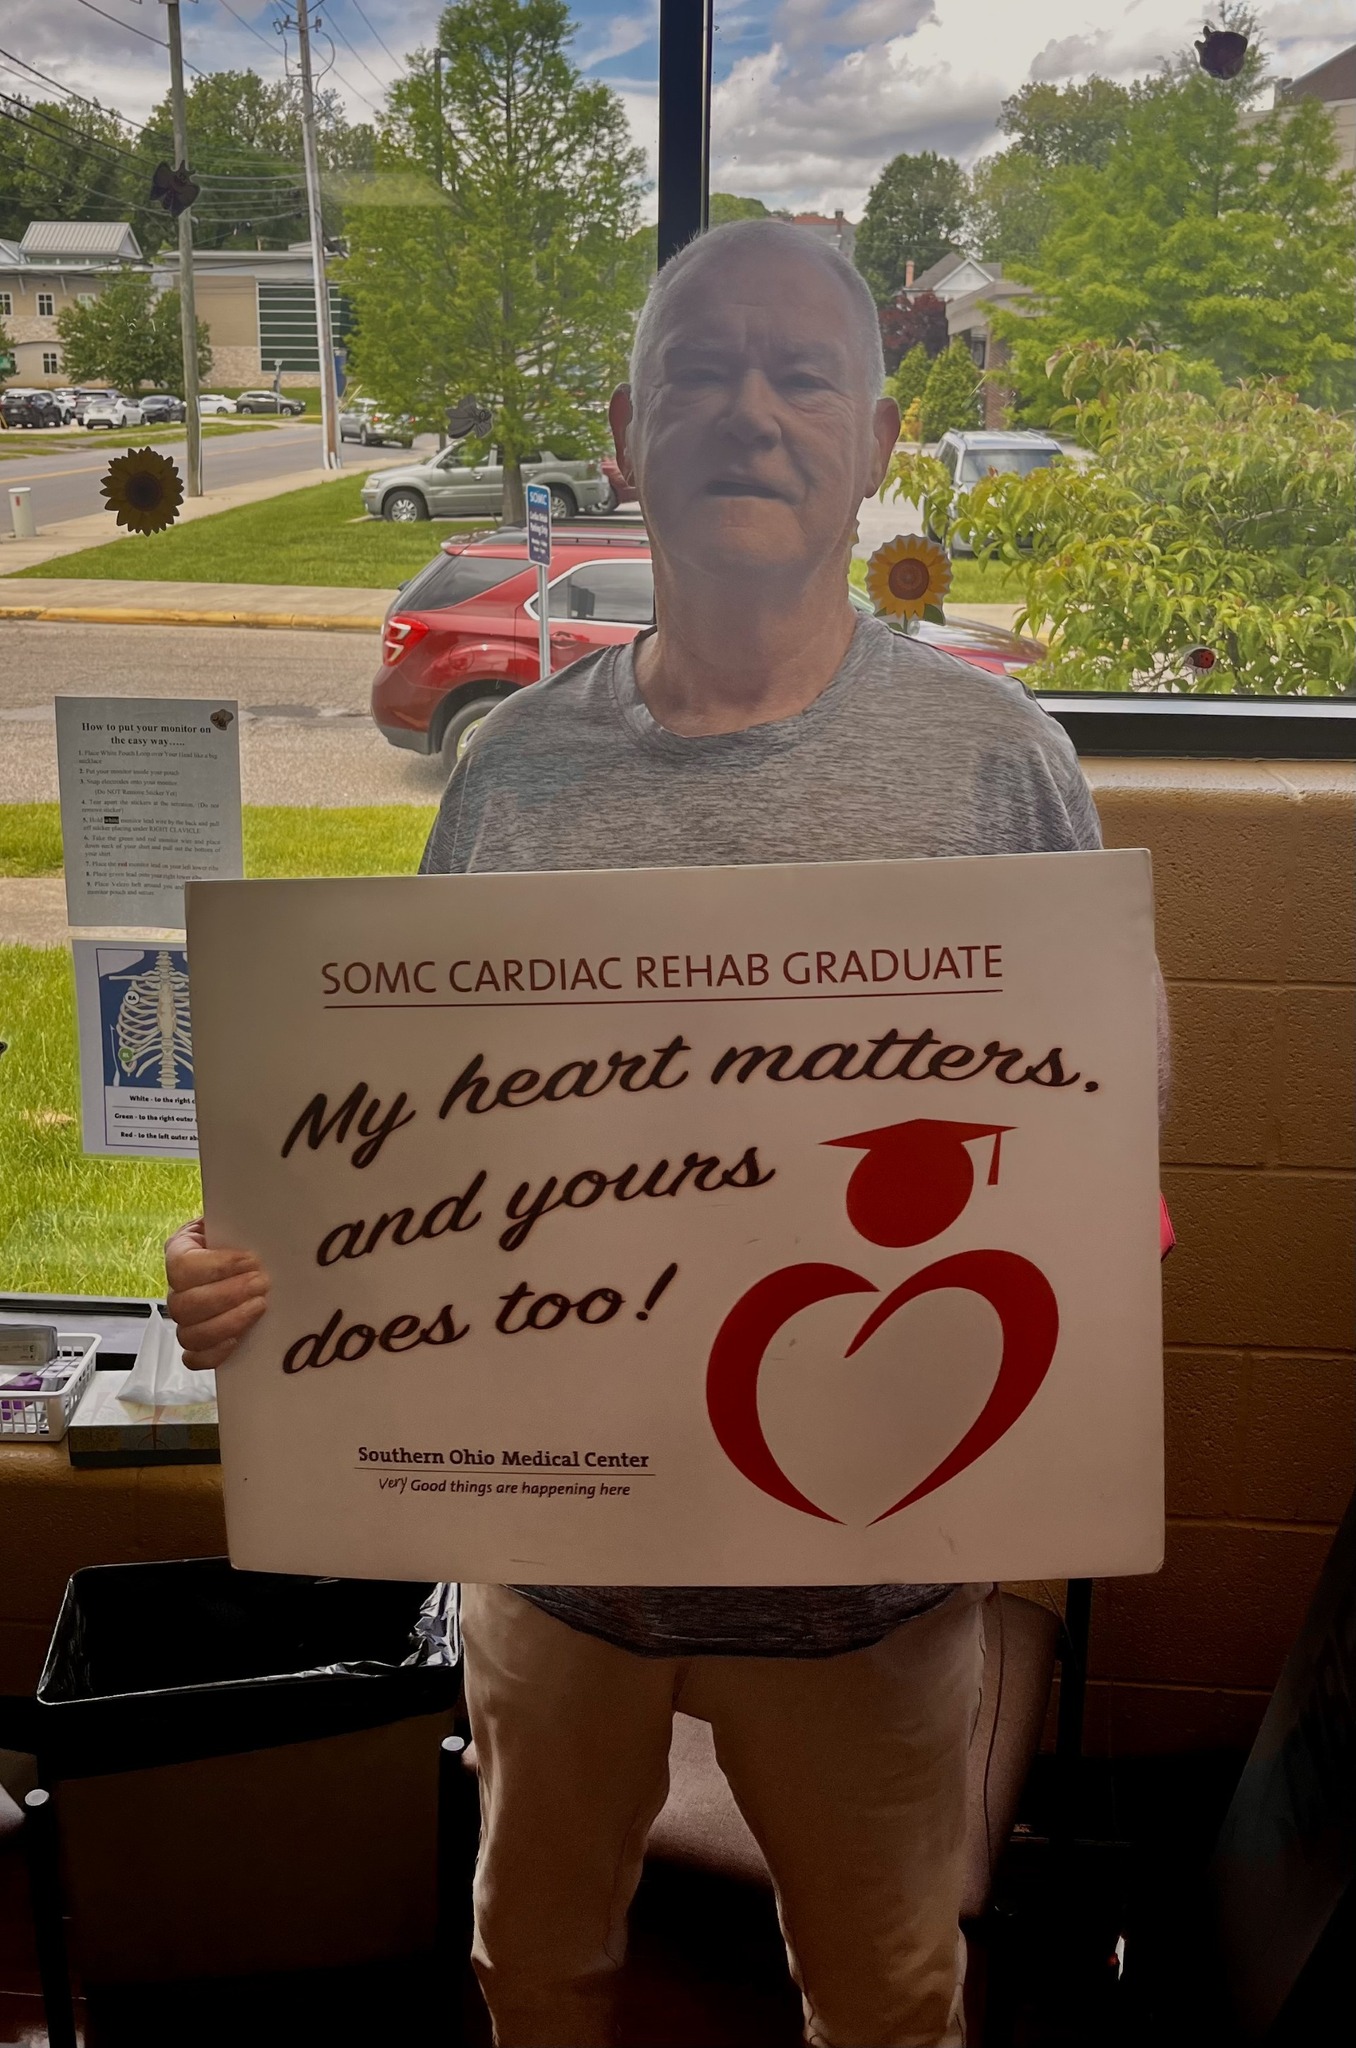 SOMC
Cardiac Rehab
Parking Only
How to put your monitor on
the easy way.....
1. Place White Pouch Loop over Your Head like a big
necklace
2. Put your monitor inside your pouch
3. Snap electrodes onto your monitor
(Do NOT Remove Sticker Yet)
4. Tear apart the stickers at the (Do not
remove sticker)
5. Hold white monitor lead wire by the back and pull
off sticker placing under RIGHT CLAVICLE
6. Take the green and red monitor wire and place
down neck of your shirt and pull out the bottom of
your shirt
7. Place the red monitor lead on your left lower rib
8. Place green lead onto your right lower rib
9. Place Velcro belt around you and
monitor pouch and secure
White - to the right c
Green - to the right outer
Red - to the left outer ab
SOMC CARDIAC REHAB GRADUATE
My heart matters,
and yours
does too!
Southern Ohio Medical Center
Very Good things are happening here